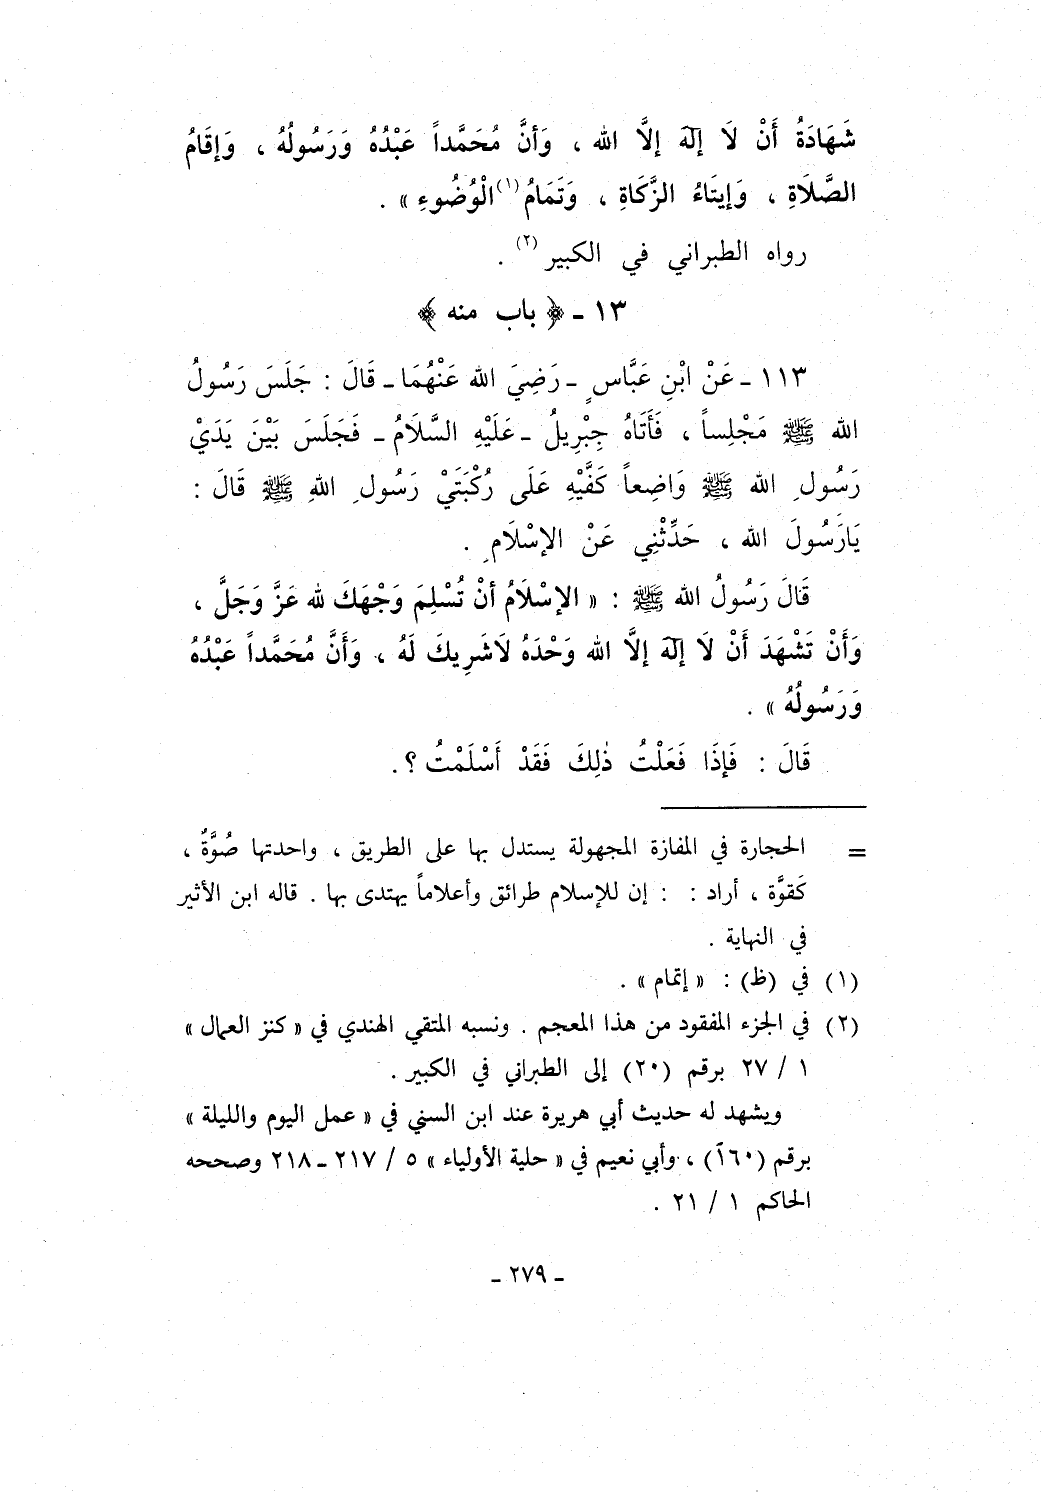 شَهَادَةُ أَنْ لَا إِلَهَ إِلَّا الله ، وَأنَّ مُحَمَّداً عَبْدُهُ وَرَسُولُهُ ، وَإِقَامُ
الصَّلَاةِ ، وَإِيتَاءُ الزَّكَاةِ ، وَتَمَامُ(١) الْوُضُوءِ » .
رواه الطبراني في الكبير(٢) .
١٣ - ﴿ باب منه ﴾
١١٣ - عَنْ ابْنِ عَبَّاسٍ - رَضِيَ الله عَنْهُمَا - قَالَ : جَلَسَ رَسُولُ
الله ﷺ مَجْلِساً ، فَأَتَاهُ جِبْرِيلُ - عَلَيْهِ السَّلَامُ - فَجَلَسَ بَيْنَ يَدَيْ
رَسُولِ الله ﷺ وَاضِعاً كَفَّيْهِ عَلَى رُكْبَتَيْ رَسُولِ اللهِ ﷺ قَالَ :
يَارَسُولَ الله ، حَدِّثْنِي عَنْ الإسْلَامِ .
قَالَ رَسُولُ الله ﷺ : « الإسْلَامُ أنْ تُسْلِمَ وَجْهَكَ لله عَزَّ وَجَلَّ ،
وَأَنْ تَشْهَدَ أَنْ لَا إِلَهَ إِلَّا الله وَحْدَهُ لَاشَرِيكَ لَهُ ، وَأَنَّ مُحَمَّداً عَبْدُهُ
وَرَسُولُهُ » .
قَالَ : فَإِذَا فَعَلْتُ ذٰلِكَ فَقَدْ أَسْلَمْتُ ؟ .
= الحجارة في المفازة المجهولة يستدل بها على الطريق ، واحدتها صُوَّةٌ ،
كَقوَّة ، أراد : : إن للإسلام طرائق وأعلاماً يهتدى بها . قاله ابن الأثير
في النهاية .
(١) في (ظ) : « إتمام » .
(٢) في الجزء المفقود من هذا المعجم . ونسبه المتقي الهندي في « كنز العمال »
١ / ٢٧ برقم (٢٠) إلى الطبراني في الكبير .
ويشهد له حديث أبي هريرة عند ابن السني في « عمل اليوم والليلة »
برقم (١٦٠) ، وأبي نعيم في « حلية الأولياء » ٥ / ٢١٧ - ٢١٨ وصححه
الحاكم ١ / ٢١ .
- ٢٧٩ -